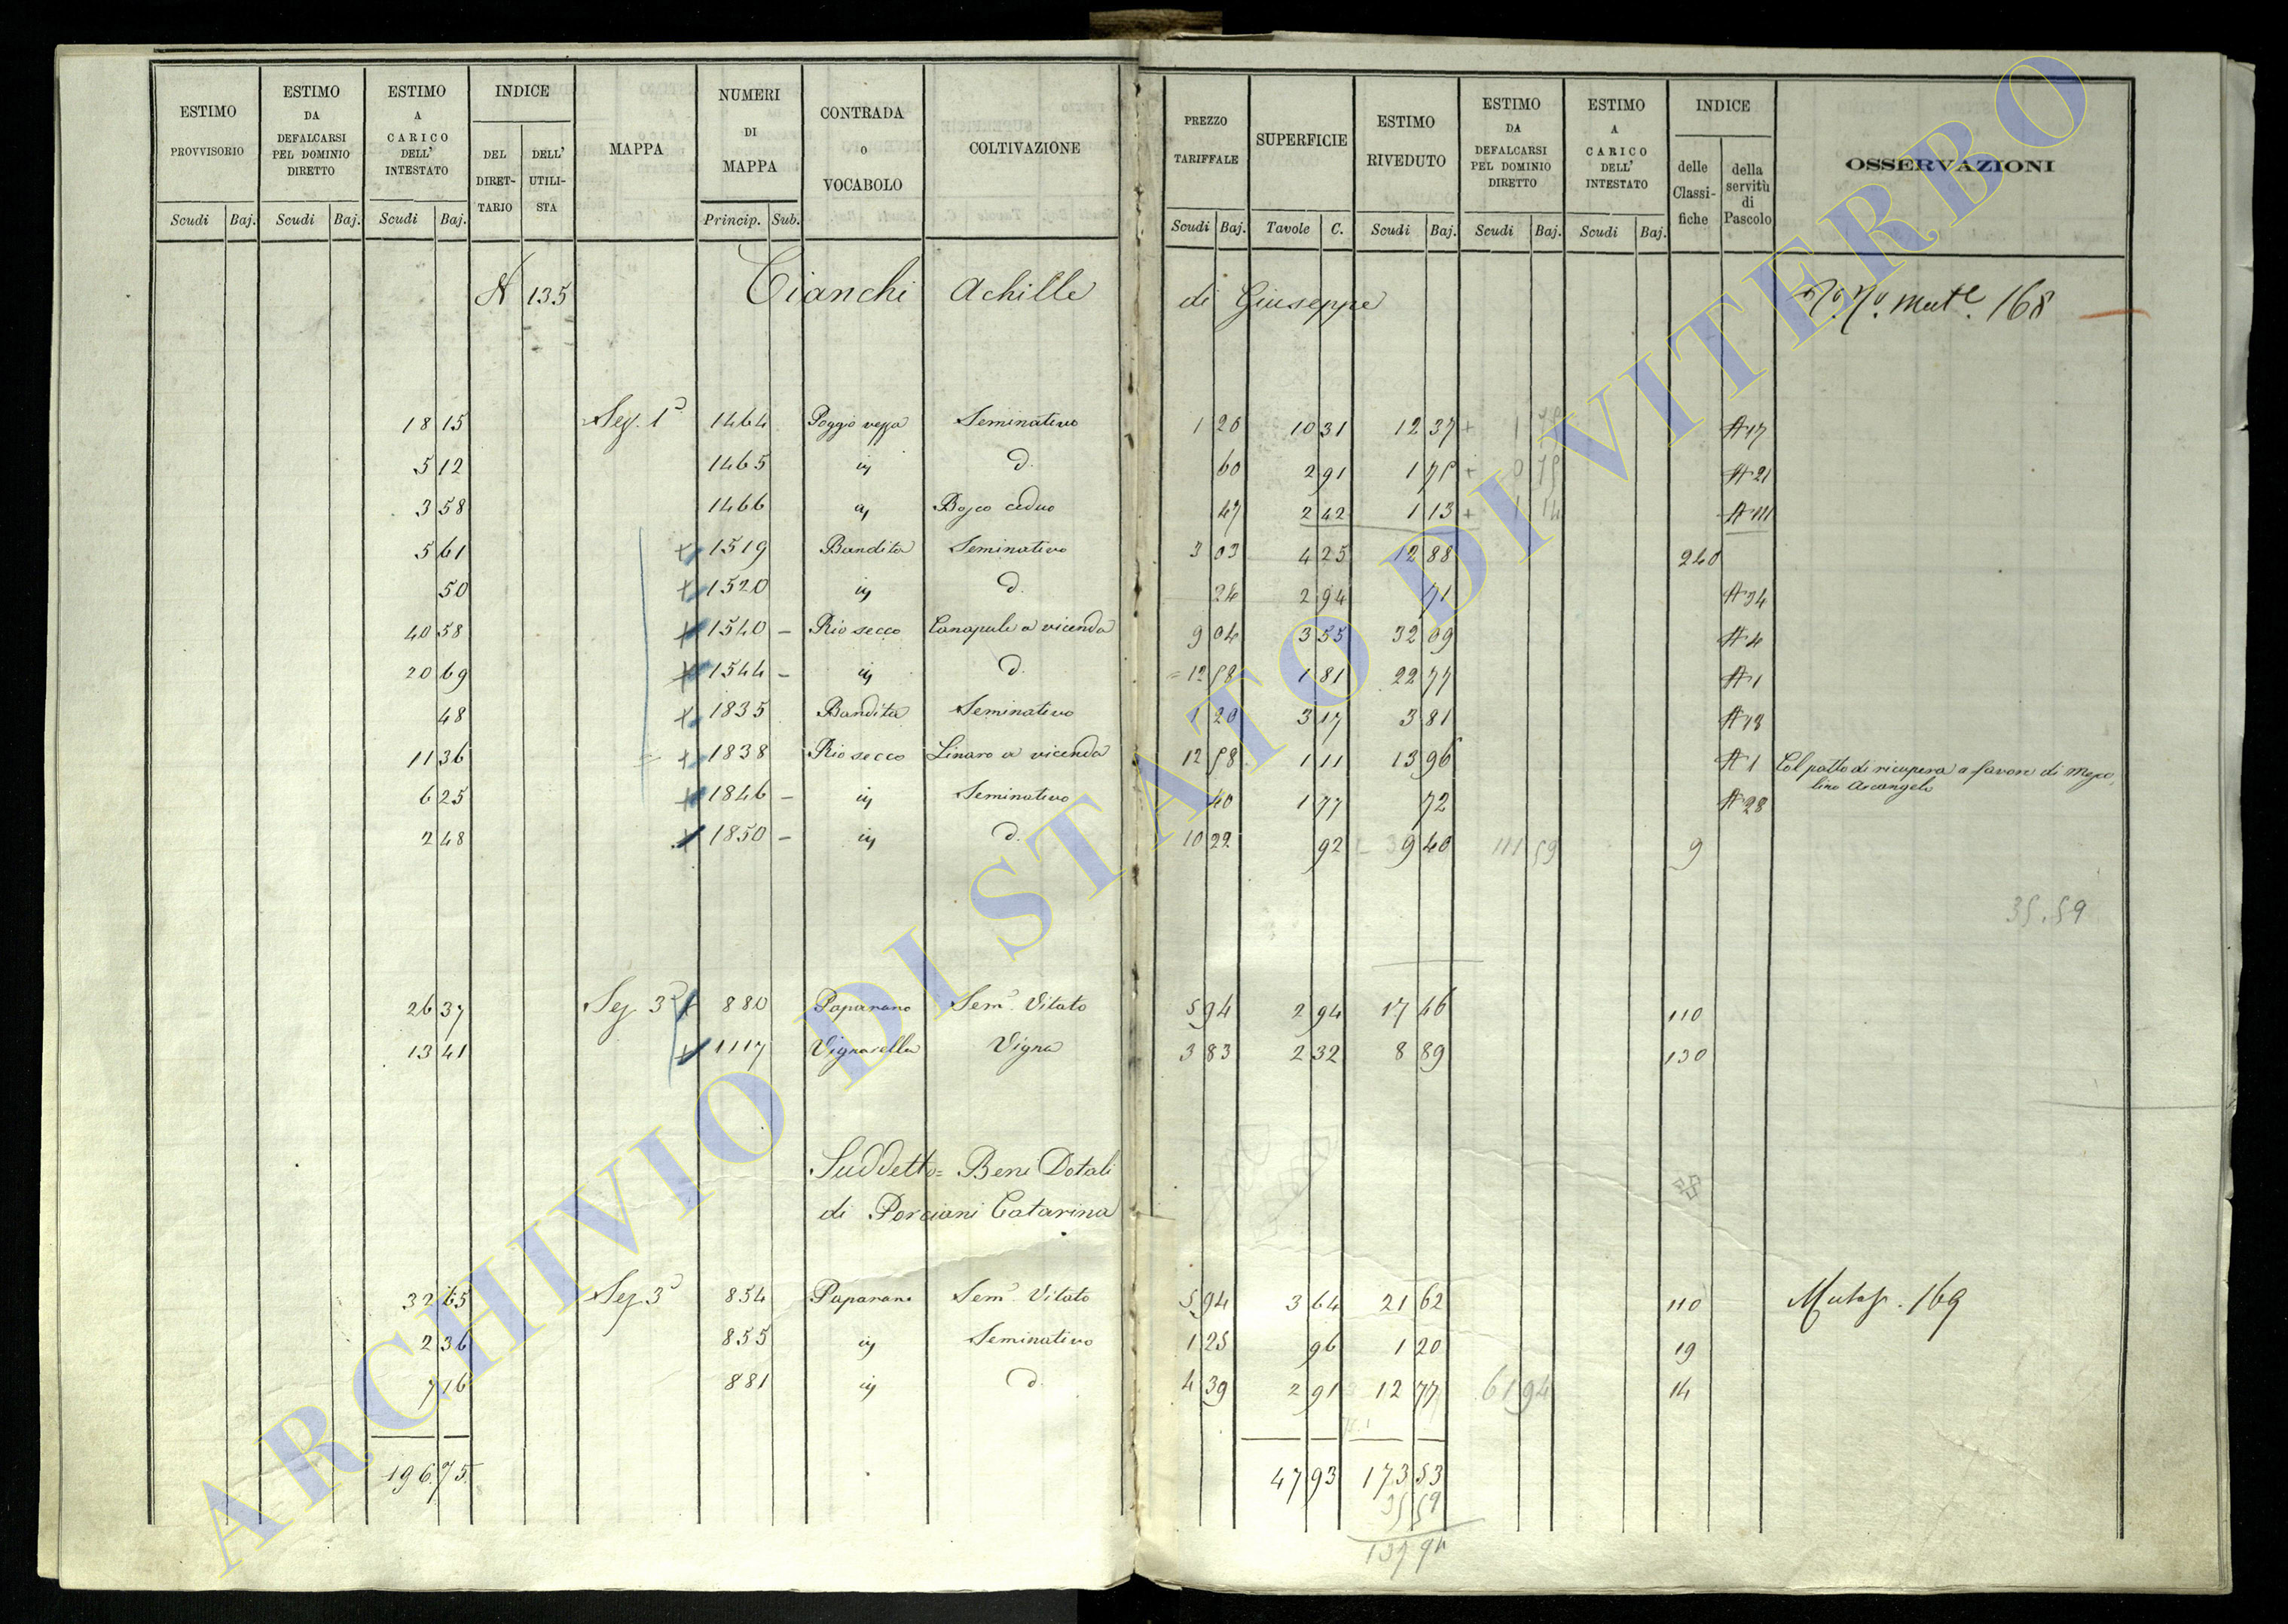 ESTIMO PROVVISORIO | ESTIMO DA DEFALCARSI PEL DOMINIO DIRETTO | ESTIMO A CARICO DELL' INTESTATO | INDICE DEL DIRET-TARIO | DELL' UTILI-STA | MAPPA | NUMERI DI MAPPA | CONTRADA O VOCABOLO | COLTIVAZIONE | PREZZO TARIFFALE | SUPERFICIE | ESTIMO RIVEDUTO | ESTIMO DA DEFALCARSI PEL DOMINIO DIRETTO | ESTIMO A CARICO DELL' INTESTATO | INDICE delle Classi-fiche | della servitù di Pascolo | OSSERVAZIONI
Scudi Baj. | Scudi Baj. | Scudi Baj. | Princip. Sub. | Scudi Baj. | Tavole C. | Scudi Baj. | Scudi Baj. | Scudi Baj.
135 Cianchi Achille di Giuseppe 168
18 15 Sez. 1ª 1464 Poggio Seminativo 1 20 10 31 12 37 + A 17
5 12 1465 id. d. 60 2 91 1 75 + A 21
3 58 1466 Bosco ceduo 47 2 42 1 13 +
5 61 + 1519 Bandita Seminativo 3 03 4 25 12 88 240
50 + 1520 id. d. 24 2 94 71 A 34
40 58 + 1540 – Rio secco Canapule a vicenda 9 04 3 55 32 09 A 4
20 69 + 1544 – id. d. 12 58 1 81 22 77 A 1
48 + 1835 Bandita Seminativo 1 20 3 17 3 81
11 36 + 1838 Rio secco Linaro a vicenda 12 58 1 11 13 96 A 1 Col patto di ricupera a favore di
lino Arcangelo
6 25 + 1846 – id. Seminativo 40 1 77 72 A 28
2 48 + 1850 – id. d. 10 22 92 9 40 111 59 9
35.59
26 37 Sez 3ª + 880 Paparano Sem. Vitato 5 94 2 94 17 46 110
13 41 + 1117 Vignarella Vigna 3 83 2 32 8 89 130
Suddetto = Beni Dotali
di Porciani Catarina
32 65 Sez 3ª 854 Paparano Sem. Vitato 5 94 3 64 21 62 110 169
2 36 855 id. Seminativo 1 25 96 1 20 19
7 16 881 id. d. 4 39 2 91 12 77 61 94 14
196.75. 47 93 173 53
35 59
137 94
ARCHIVIO DI STATO DI VITERBO